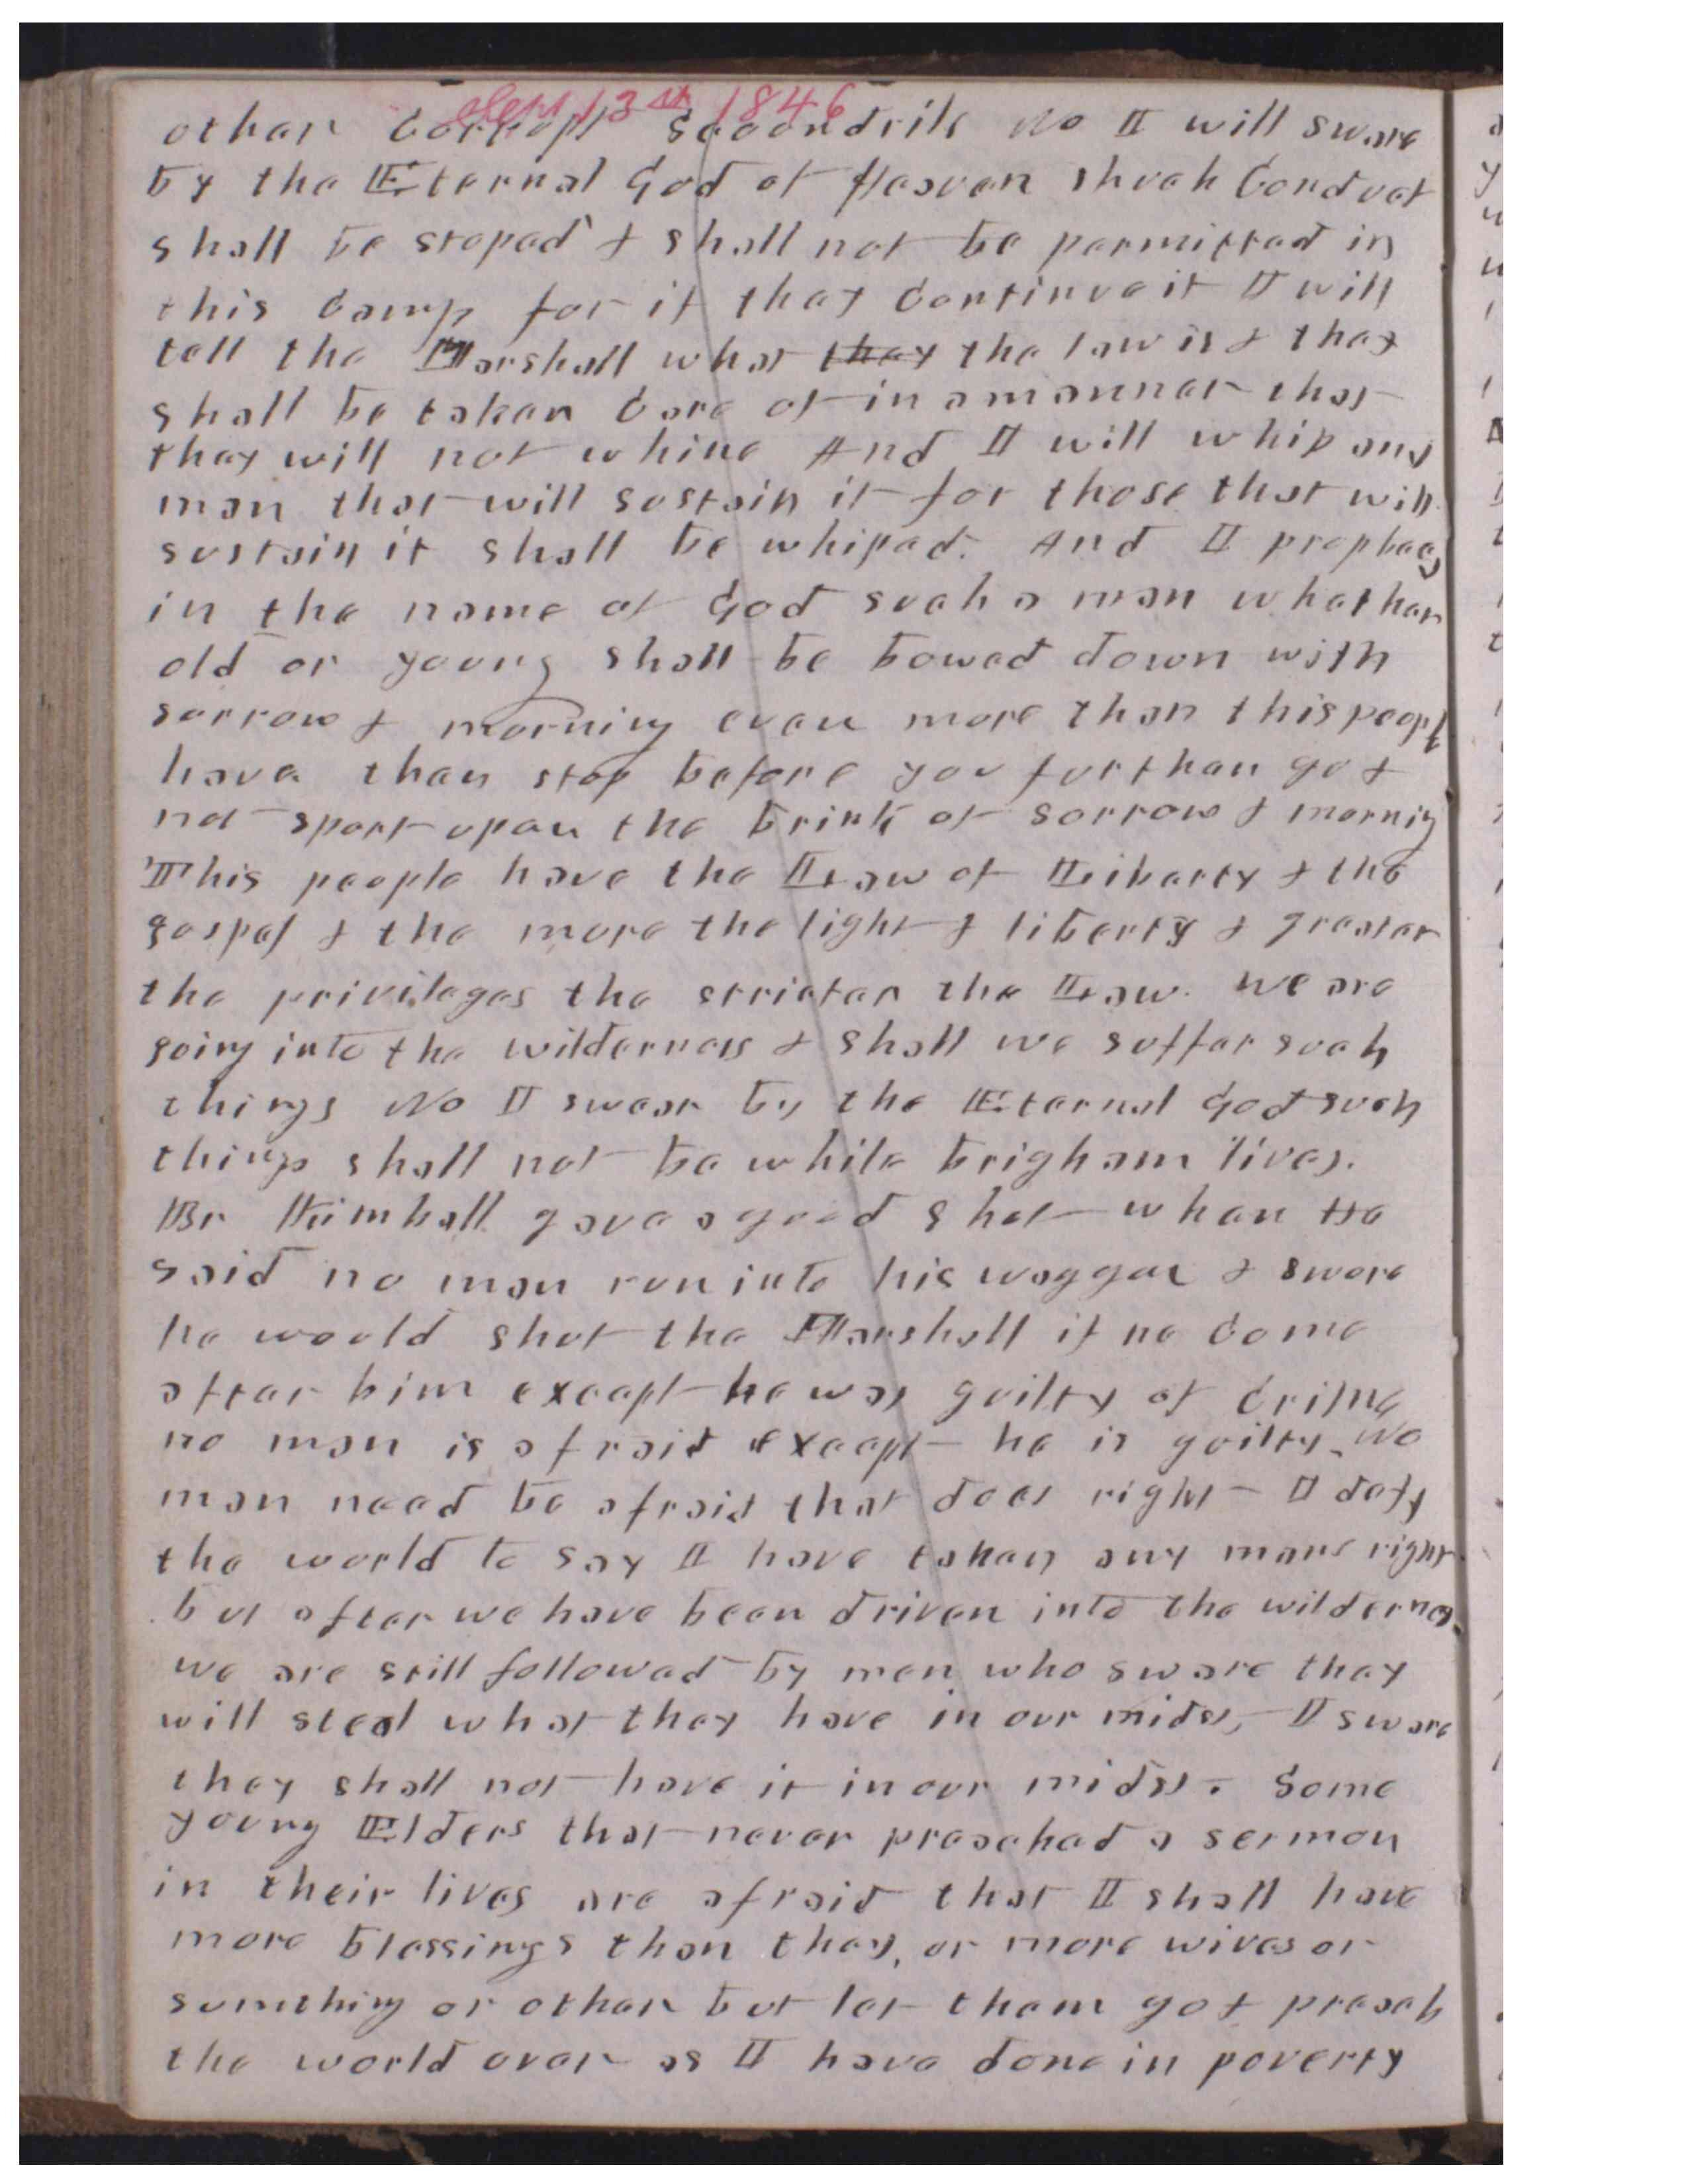 Sept 13st 1846
other Corrupt Scoundrils No I will sware
by the Eternal God of Heaven shuch Conduct
shall be stoped & shall not be permitted in
this Camp for if they Continue it I will
tell the Marshall what they the law is & they
shall be taken Care of in a manner that
they will not whine And I will whip any
man that will sustain it for those that will
sustain it shall be whiped. And I prophecy
in the name of God such a man whether
old or young shall be bowed down with
sorrow & morning even more than this people
have then stop before you further go &
not sport upon the brink of sorrow & mornig
This people have the Law of Liberty & the
gospel & the more the light & liberty & greater
the privileges the stricter the Law. we are
going into the wilderness & shall we suffer such
things No I swear by the Eternal God such
things shall not be while brigham lives.
Br Kimball gave a good shot when He
said no man run into his waggon & swore
he would shot the Marshall if he Come
after him except he was guilty of Crime
no man is afraid except he is guilty. No
man need be afraid that does right - I defy
the world to say I have taken any mans right
but after we have been driven into the wilderness
we are still followed by men who sware they
will steal what they have in our midst, I sware
they shall not have it in our midst. Some
young Elders that never preached a sermon
in their lives are afraid that I shall have
more blessings than they, or more wives or
sumthing or other but let them go & preach
the world over as I have done in poverty